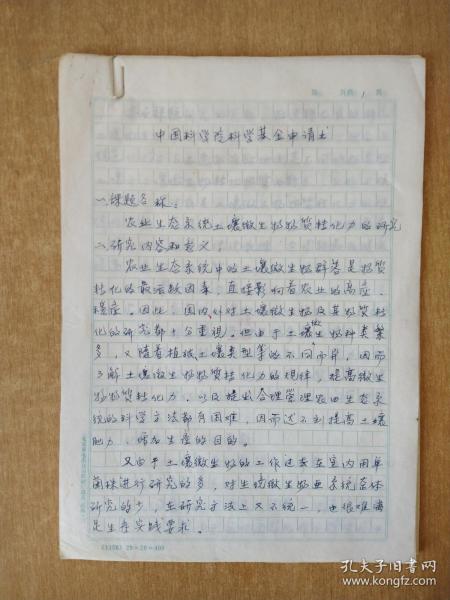 第 页共 1 页
中国科学院科学基金申请书
一、课题名称:
农业生态系统土壤微生物物质转化力的研究
二、研究内容和意义:
农业生态系统中的土壤微生物群落是物质
转化的最活跃因素,直接影响着农业的高产、
稳产。因此,国内外对土壤微生物及其物质转
化的研究都十分重视。但由于土壤微生物种类繁
多,又随着植被土壤类型等的不同而异,因而
了解土壤微生物物质转化力的规律,提高微生
物物质转化力,以及提出合理管理农田生态系
统的科学方法都有困难,因而达不到提高土壤
肥力、增加生产的目的。
又由于土壤微生物的工作过去在室内用单
菌株进行研究的多,对生境微生物区系统整体
研究的少,在研究方法上又不统一,也很难满
足生产实践要求。
(1108) 20×20=400
孔夫子旧书网
book.kongfz.com